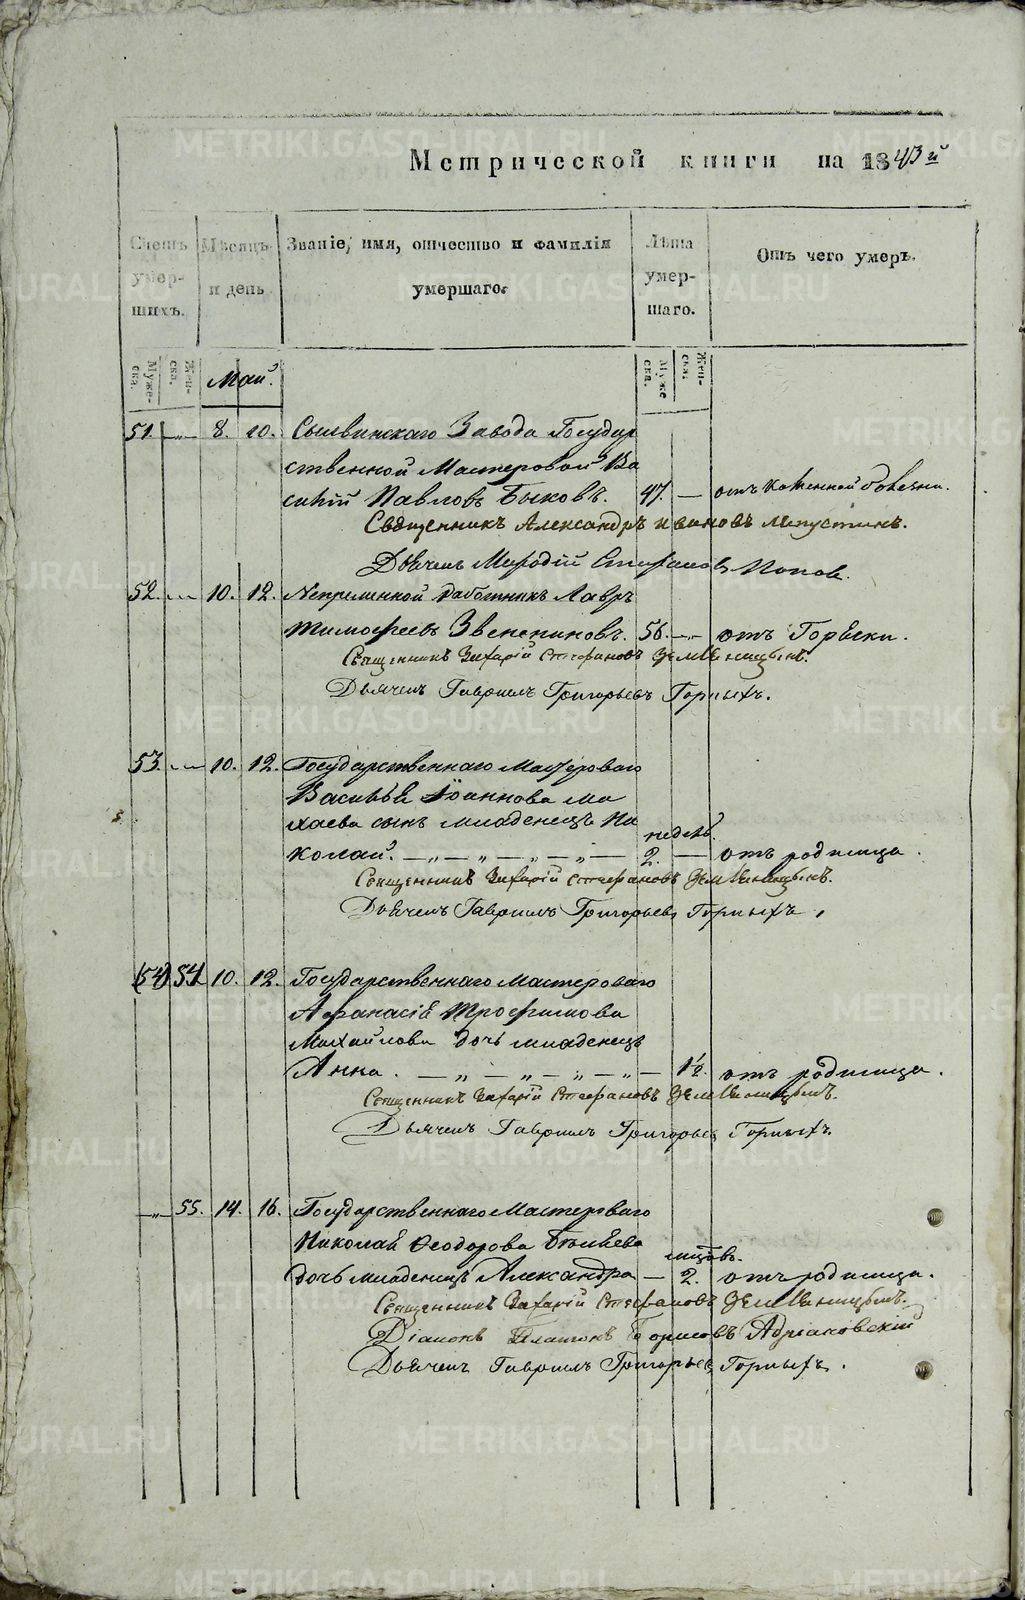 Метрической книги на 1843й
Счетъ умершихъ. Мѣсяцъ и день Званіе, имя, отчество и фамилія умершаго. Лѣта умершаго. Отъ чего умеръ.
Мужеска. Женска. Май. Мужеска Женска.
51. —„— 8. 10. Сылвинскаго Завода Государ
ственной Мастеровой Ва
силій Павловъ Быковъ. 47. — отъ
Священникъ Александръ Ивановъ
Дьячекъ Меѳодій Стефановъ Поповъ.
52. —„— 10. 12. Непременной работникъ Лавръ
Тимоѳеевъ 56. —„— отъ Горячки.
Священникъ Захарій Стефановъ Земляницынъ.
Дьячекъ Гавріилъ Григорьевъ Горныхъ.
53. —„— 10. 12. Государственнаго Мастероваго
Василья Іоаннова Ма
хаева сынъ младенецъ Ни
недѣль.
колай. —„—„—„—„— 2. — отъ родимца.
Священникъ Захарій Стефановъ Земляницынъ.
Дьячекъ Гавріилъ Григорьевъ Горныхъ.
(54) 54. 10. 12. Государственнаго Мастероваго
Аѳанасія Трофимова
Михайлова дочь младенецъ
Анна. —„—„—„—„— 1½. отъ родимца.
Священникъ Захарій Стефановъ Земляницынъ.
Дьячекъ Гавріилъ Григорьевъ Горныхъ.
—„— 55. 14. 16. Государственнаго Мастероваго
Николая Ѳеодорова Беляева
мѣцовъ.
дочь младенецъ Александра — 2. отъ родимца.
Священникъ Захарій Стефановъ Земляницынъ.
Діаконъ Платонъ Борисовъ Адріановскій
Дьячекъ Гавріилъ Григорьевъ Горныхъ.
METRIKI.GASO-URAL.RU